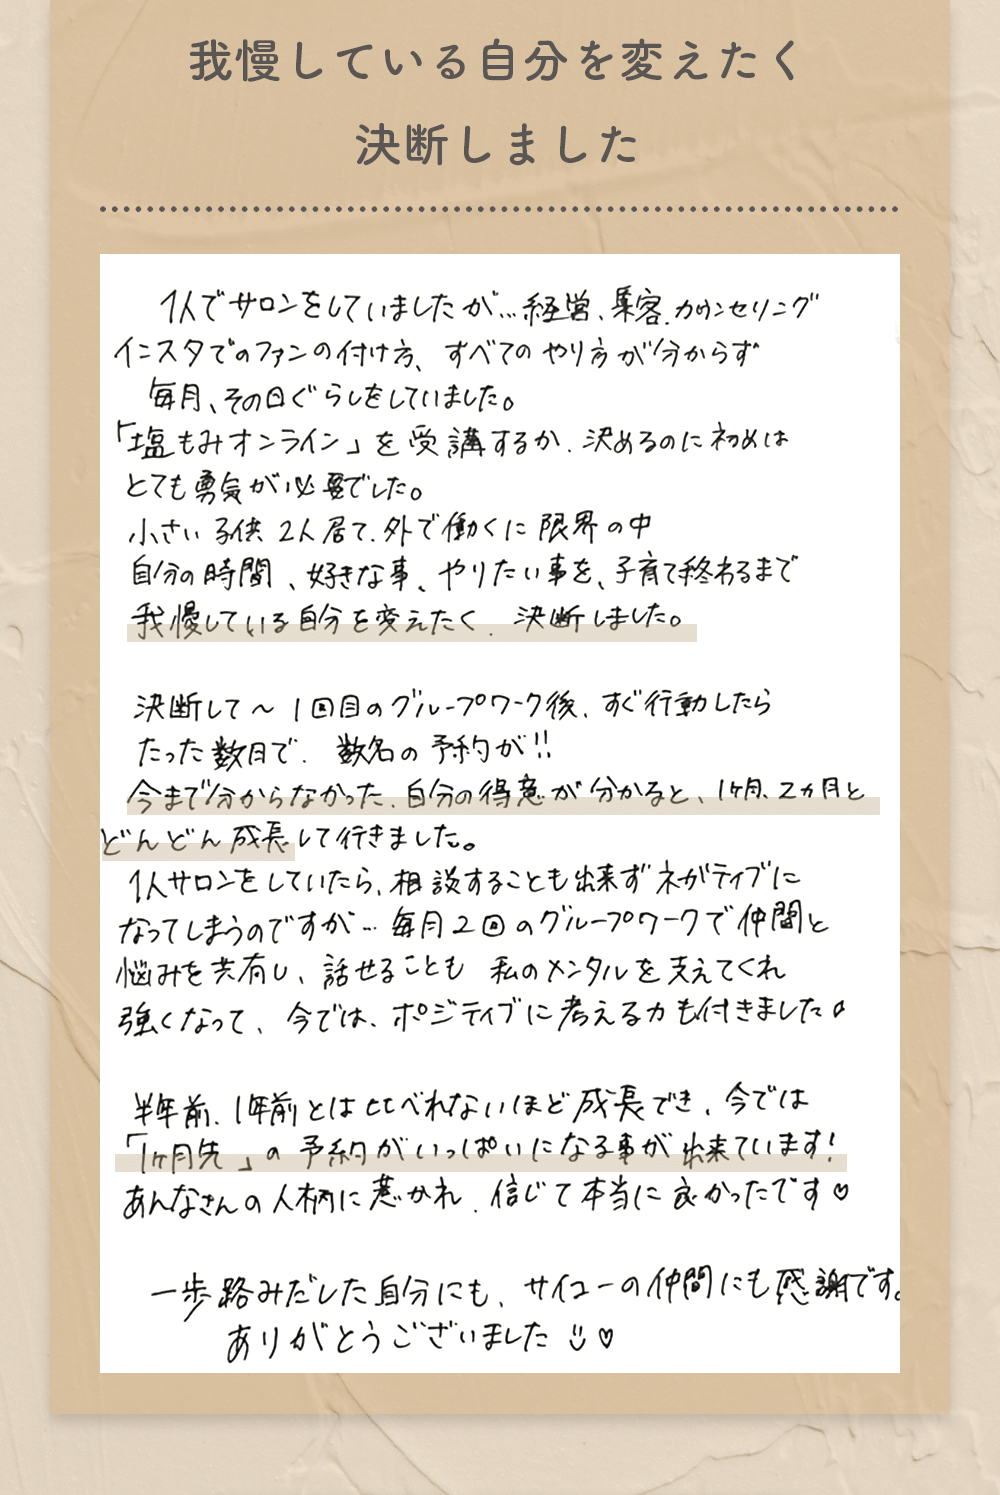 我慢している自分を変えたく
決断しました
1人でサロンをしていましたが…経営、集客、カウンセリング
インスタでのファンの付け方、すべてのやり方が分からず
毎月、その日ぐらしをしていました。
「塩もみオンライン」を受講するか、決めるのに初めは
とても勇気が必要でした。
小さい子供2人居て、外で働くに限界の中
自分の時間、好きな事、やりたい事を、子育て終わるまで
我慢している自分を変えたく、決断しました。
決断して〜1回目のグループワーク後、すぐ行動したら
たった数日で、数名の予約が!!
今まで分からなかった、自分の得意が分かると、1ヶ月、2ヵ月と
どんどん成長して行きました。
1人サロンをしていたら、相談することも出来ずネガティブに
なってしまうのですが…毎月2回のグループワークで仲間と
悩みを共有し、話せることも私のメンタルを支えてくれ
強くなって、今では、ポジティブに考える力も付きました♪
半年前、1年前とは比べれないほど成長でき、今では
「1ヶ月先」の予約がいっぱいになる事が出来ています!
あんなさんの人柄に惹かれ、信じて本当に良かったです♡
一歩踏みだした自分にも、サイコーの仲間にも感謝です。
ありがとうございました ♡